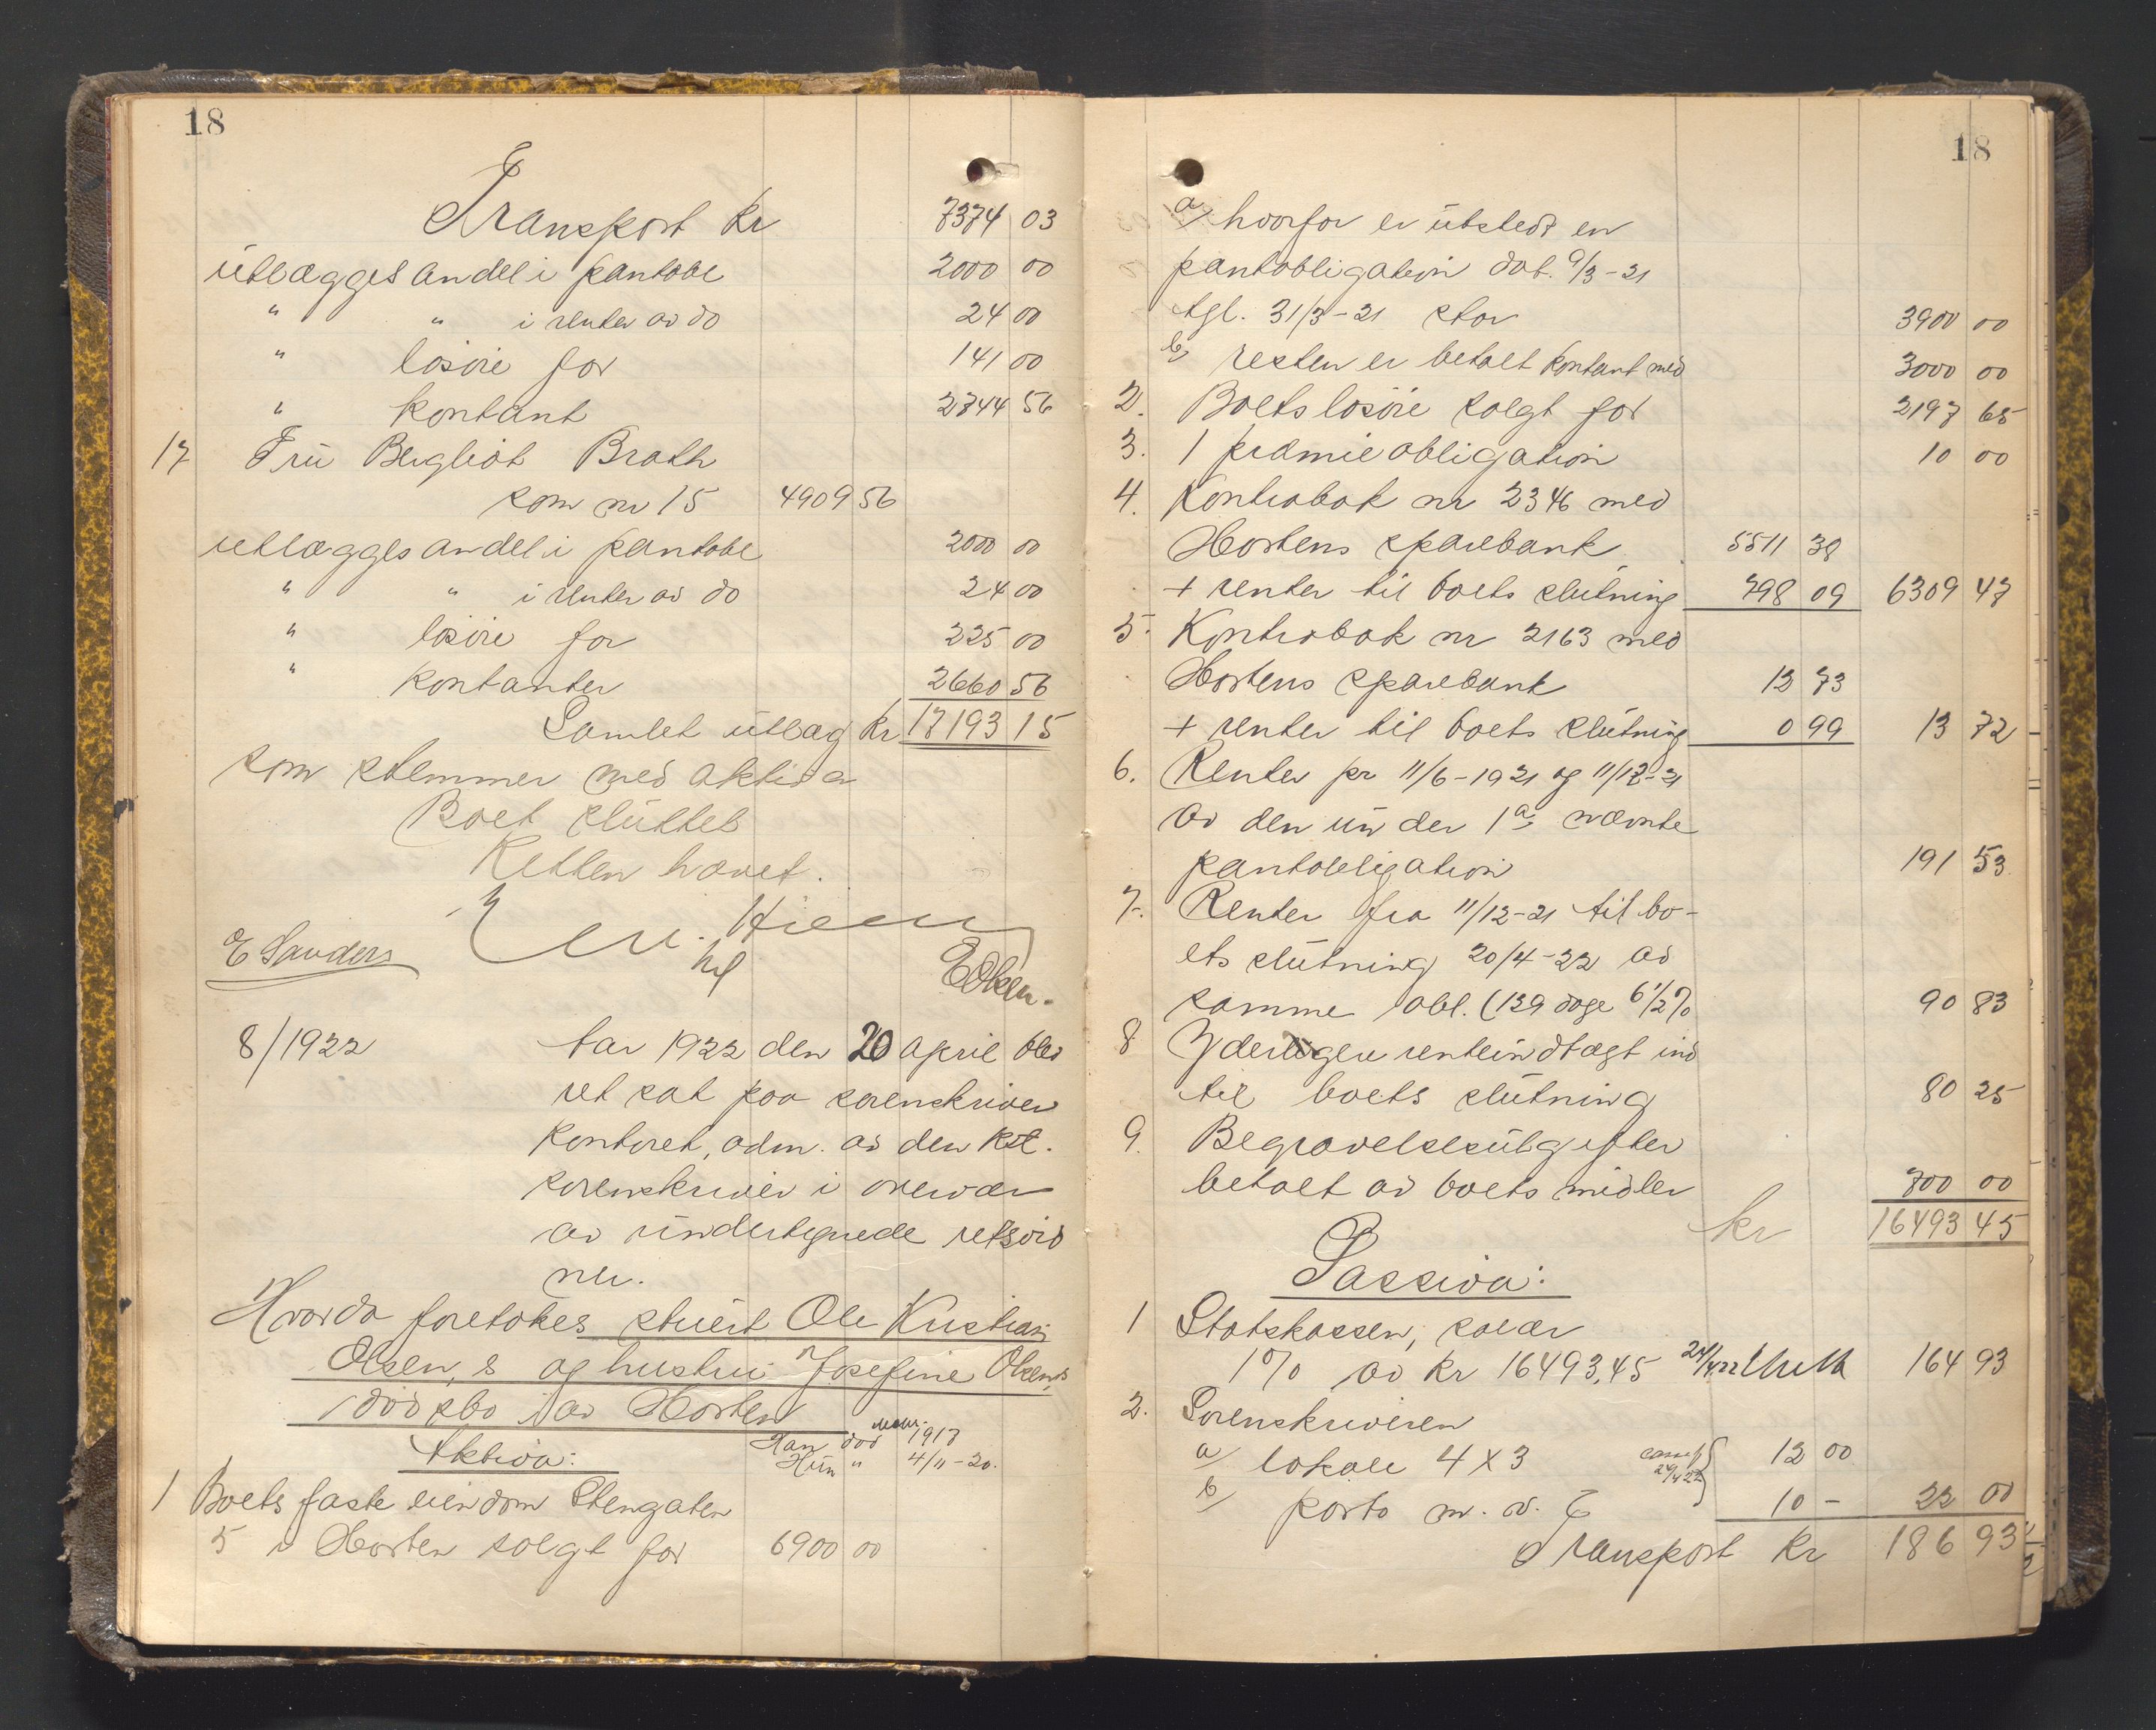 18
Transport kr 7374 03
utlægges andel i pantobl 2000 00
" " i renter av do 24 00
" løsøre for 141 00
" kontant 2744 56
17 Fru Bergliot Brath
som nr 15 4909 56
utlægges andel i pantobl 2000 00
" " i renter av do 24 00
" løsøre for 225 00
" kontanter 2660 56
Samlet utlæg kr 17193 15
som stemmer med aktiva
Boet sluttet
Retten hævet.
E Sanders
EOlsen.
8/1922 Aar 1922 den 20 april blev
ret sat paa sorenskriver
kontoret, adm. av den kst.
sorenskriver i overvær
av undertegnede retsvid
ner.
Hvorda foretokes stuert Ole Kristian
Olsen, s og hustru Josefine Olsens
dødsbo av Horten
Aktiva: Han død 1917
Hun " 4/11-20.
1 Boets faste eiendom Stengaten
5 i Horten solgt for 6900 00
18
a/ hvorfor er utstedt en
pantobligation dat. 9/3-21
tgl. 31/3-21 stor 3900 00
b/ resten er betalt kontant med 3000 00
2. Boets løsøre solgt for 2197 65
3. 1 præmieobligation 10 00
4. Kontrabok nr 2346 med
Hortens sparebank 5511 38
+ renter til boets slutning 798 09 6309 47
5. Kontrabok nr 2163 med
Hortens sparebank 12 73
+ renter til boets slutning 0 99 13 72
6. Renter pr 11/6-1921 og 11/12-21
av den under 1a nævnte
pantobligation 191 53
7. Renter fra 11/12-21 til bo-
ets slutning 20/4-22 av
samme obl. (129 dage 6 1/2 % 90 83
8 Yderligere renteindtægt ind
til boets slutning 80 25
9. Begravelsesutgifter
betalt av boets midler 700 00
kr 16493 45
Passiva:
1 Statskassen, salær
1% av kr 16493,45 164 93
2. Sorenskriveren
a/ lokale 4 x 3 12 00
b/ porto m. v. 10 - 22 00
Transport kr 186 93